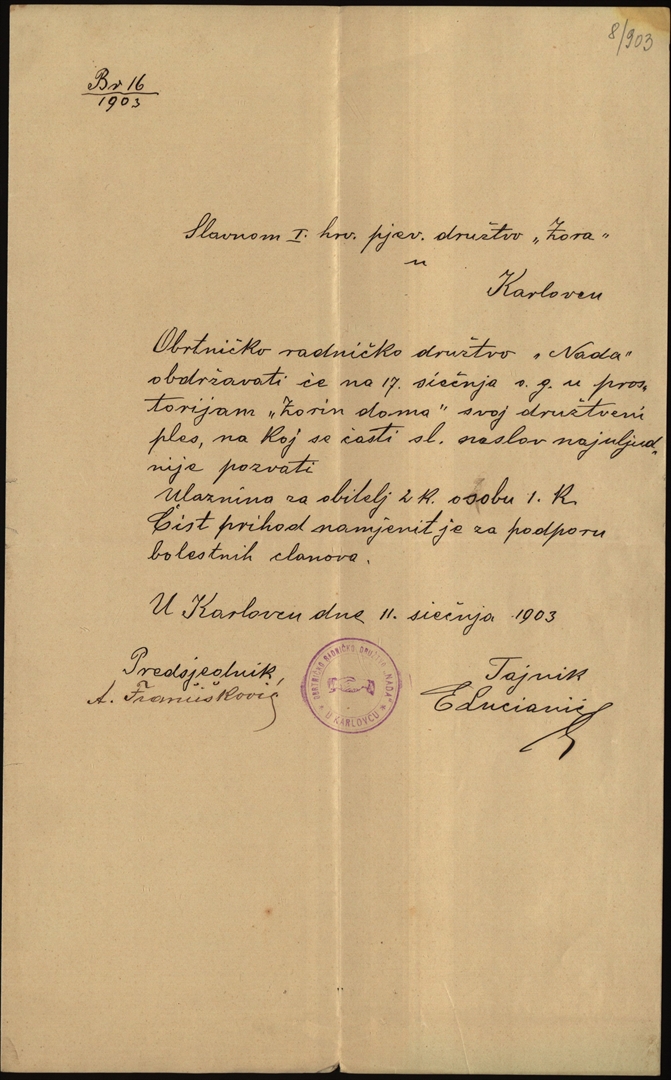 8/903
Br 16
1903
Slavnom I. hrv. pjev. družtvo „Zora"
u
Karlovcu
Obrtničko radničko družtvo „Nada"
obdržavati će na 17. siečnja o. g. u pros-
torijam „Zorin doma" svoj družtveni
ples, na koj se časti sl. naslov najuljud-
nije pozvati
Ulaznina za obitelj 2 K. osobu 1. K
Čist prihod namjenit je za podporu
bolestnih clanova.
U Karlovcu dne 11. siečnja 1903
Predsjednik,
Tajnik
A. Frančišković
E Lucianić
OBRTNIČKO RADNIČKO DRUŽTVO „NADA"
* U KARLOVCU *